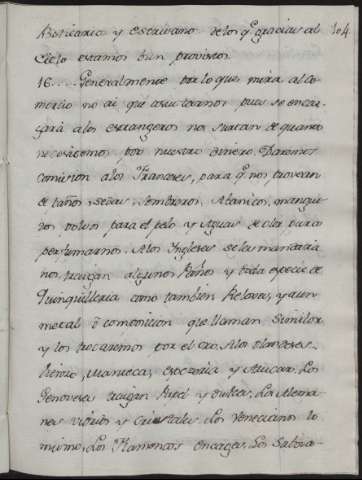 Boticario y Escrivano de los q.e gracias al 104
Cielo estamos bien provistos.
16.... Generalmente por lo que mira al Co
mercio no ai que
los estrangeros nos surtan de quanto
necesitemos por nuestro dinero. Daremos
comision a los Franceses, para q.e nos provean
de Paños, sedas, sombreros, Abanicos, mangui
tos, polvos para el pelo y Aguas de olor para
perfumarnos. A los Ingleses se les mandaria
nos traigan algunos Paños y toda especie de
Quinquilleria como tambien Reloxes, y aun
metal ò composicion que llaman Similor
y los trocaremos por el oro. A los olandeses
lienzo, Manteca, especieria y Azucar. Los
Genoveses traigan Papel y dulces. Los Alema
nes vidrios y Cristales. Los Venecianos lo
mismo. Los Flamencos encages. Los Saboya-